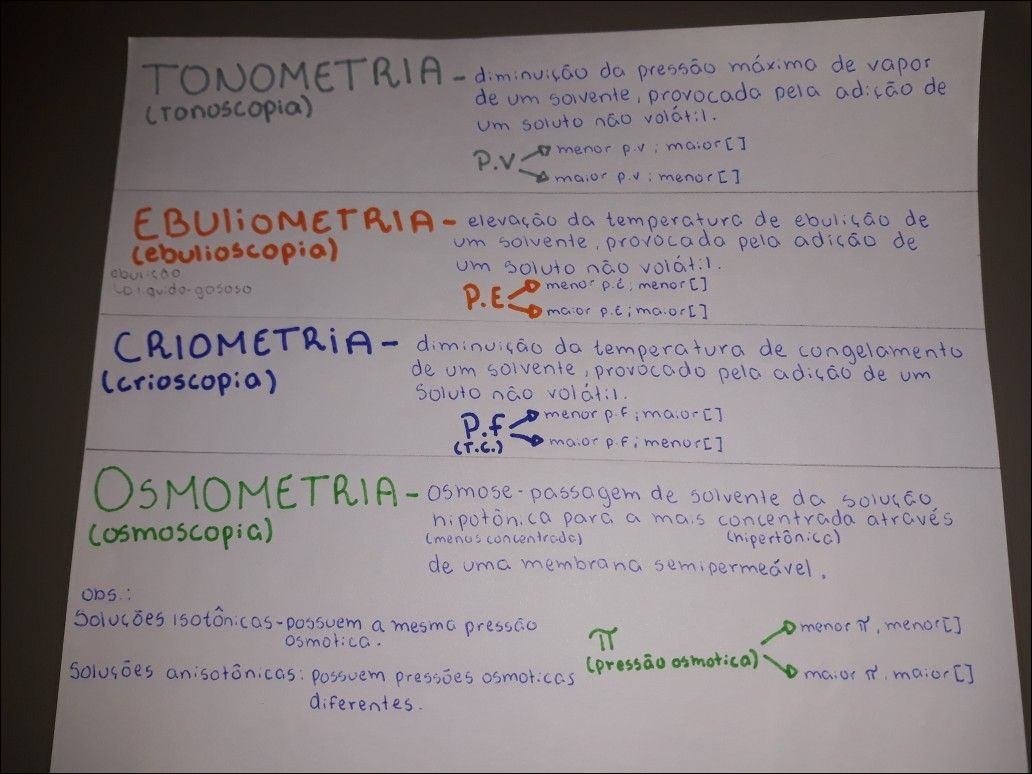 TONOMETRIA - diminuição da pressão máxima de vapor
(tonoscopia) de um solvente, provocada pela adição de
um soluto não volátil.
P.V → menor p.v; maior[]
→ maior p.v; menor[]
EBULIOMETRIA - elevação da temperatura de ebulição de
(ebulioscopia) um solvente, provocada pela adição de
um soluto não volátil.
ebulição
↳ líquido-gasoso
P.E → menor p.é; menor[]
→ maior p.é; maior[]
CRIOMETRIA - diminuição da temperatura de congelamento
(crioscopia) de um solvente, provocado pela adição de um
soluto não volátil.
P.f → menor p.f; maior[]
(T.C.) → maior p.f; menor[]
OSMOMETRIA - osmose - passagem de solvente da solução
(osmoscopia) hipotônica para a mais concentrada através
(menos concentrada) (hipertônica)
de uma membrana semipermeável.
obs.:
Soluções isotônicas - possuem a mesma pressão
osmotica.
Soluções anisotônicas: possuem pressões osmoticas
diferentes.
π → menor π, menor[]
(pressão osmotica) → maior π, maior[]